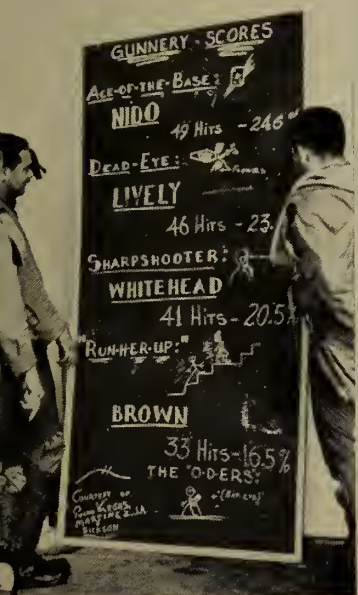 GUNNERY SCORES
ACE-OF-THE-BASE:
NIDO
49 Hits - 24.6%
DEAD-EYE:
LIVELY
46 Hits - 23.
SHARPSHOOTER:
WHITEHEAD
41 Hits - 20.5%
"RUN-HER-UP:"
BROWN
33 Hits - 16.5%
THE "O-DERS":
COURTESY OF
VARGAS
MARTINEZ